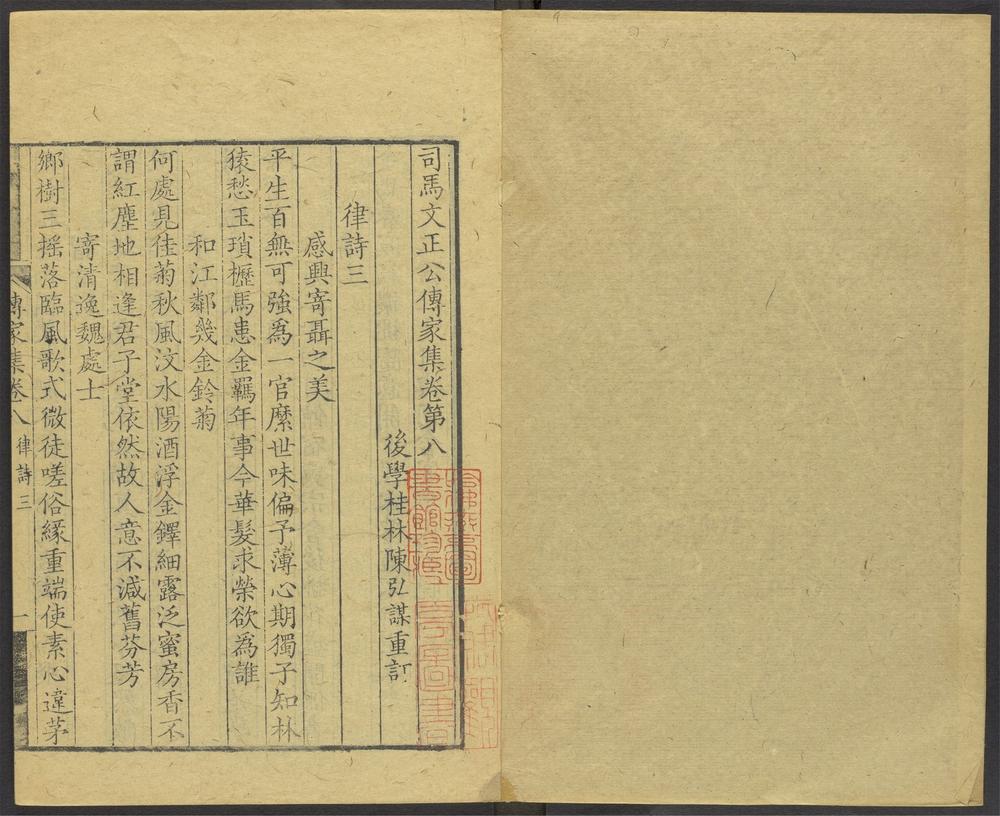 司馬文正公傳家集卷第八
後學桂林陳弘謀重訂
律詩三
感興寄聶之美
平生百無可強爲一官縻世味偏予薄心期獨子知林
猿愁玉瑣櫪馬患金羈年事今華髮求榮欲爲誰
和江鄰幾金鈴菊
何處見佳菊秋風汶水陽酒浮金鐸細露泛蜜房香不
謂紅塵地相逢君子堂依然故人意不減舊芬芳
寄清逸魏處士
鄉樹三搖落臨風歌式微徒嗟俗緣重端使素心違茅
傳家集卷八 律詩三 一